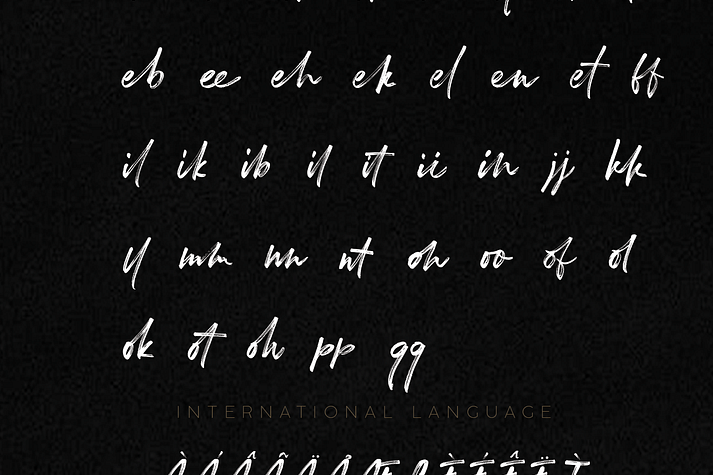 eb ee eh ek el en et ff
il ik ib il it ii in jj kk
ll mm nn nt oh oo of ol
ok ot oh pp qq
INTERNATIONAL LANGUAGE